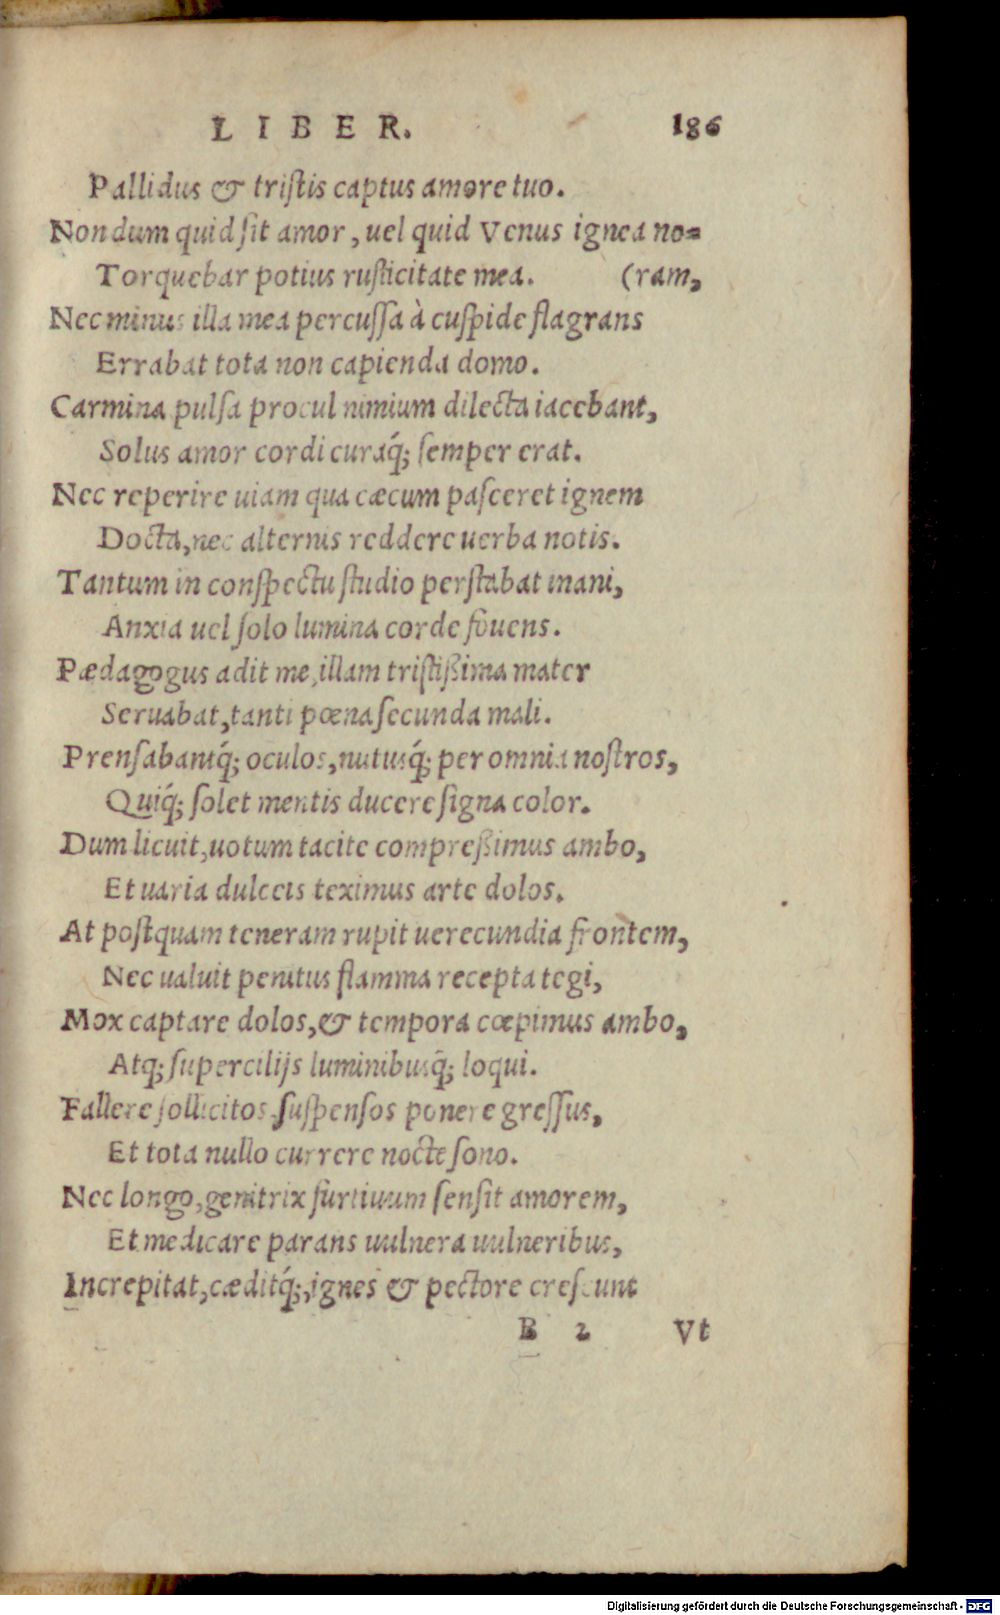 LIBER. 186
Pallidus & tristis captus amore tuo.
Nondum quid sit amor, uel quid Venus ignea no=
Torquebar potius rusticitate mea. (ram,
Nec minus illa mea percussa à cuspide flagrans
Errabat tota non capienda domo.
Carmina pulsa procul nimium dilecta iacebant,
Solus amor cordi curaq́; semper erat.
Nec reperire uiam qua cæcum pasceret ignem
Docta, nec alternis reddere uerba notis.
Tantum in conspectu studio perstabat inani,
Anxia uel solo lumina corde fouens.
Pædagogus adit me, illam tristißima mater
Seruabat, tanti pœna secunda mali.
Prensabantq́; oculos, nutusq́; per omnia nostros,
Quiq́; solet mentis ducere signa color.
Dum licuit, uotum tacite compreßimus ambo,
Et uaria dulceis teximus arte dolos.
At postquam teneram rupit uerecundia frontem,
Nec ualuit penitus flamma recepta tegi,
Mox captare dolos, & tempora cœpimus ambo,
Atq; supercilijs luminibusq́; loqui.
Fallere sollicitos, suspensos ponere gressus,
Et tota nullo currere nocte sono.
Nec longo, genitrix furtiuum sensit amorem,
Et medicare parans uulnera uulneribus,
Increpitat, cæditq́;, ignes & pectore crescunt
B 2 Vt
Digitalisierung gefördert durch die Deutsche Forschungsgemeinschaft - DFG